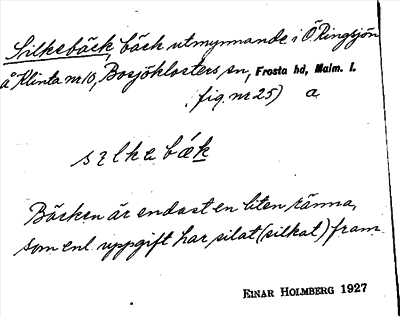 Silkebäck, bäck utmynnande i Ö Ringsjön
å Klinta nr 10, Bosjöklosters sn, Frosta hd, Malm. l.
(fig nr 25) a.
silkebæk
Bäcken är endast en liten ränna,
som enl uppgift har silat (silkat) fram
EINAR HOLMBERG 1927